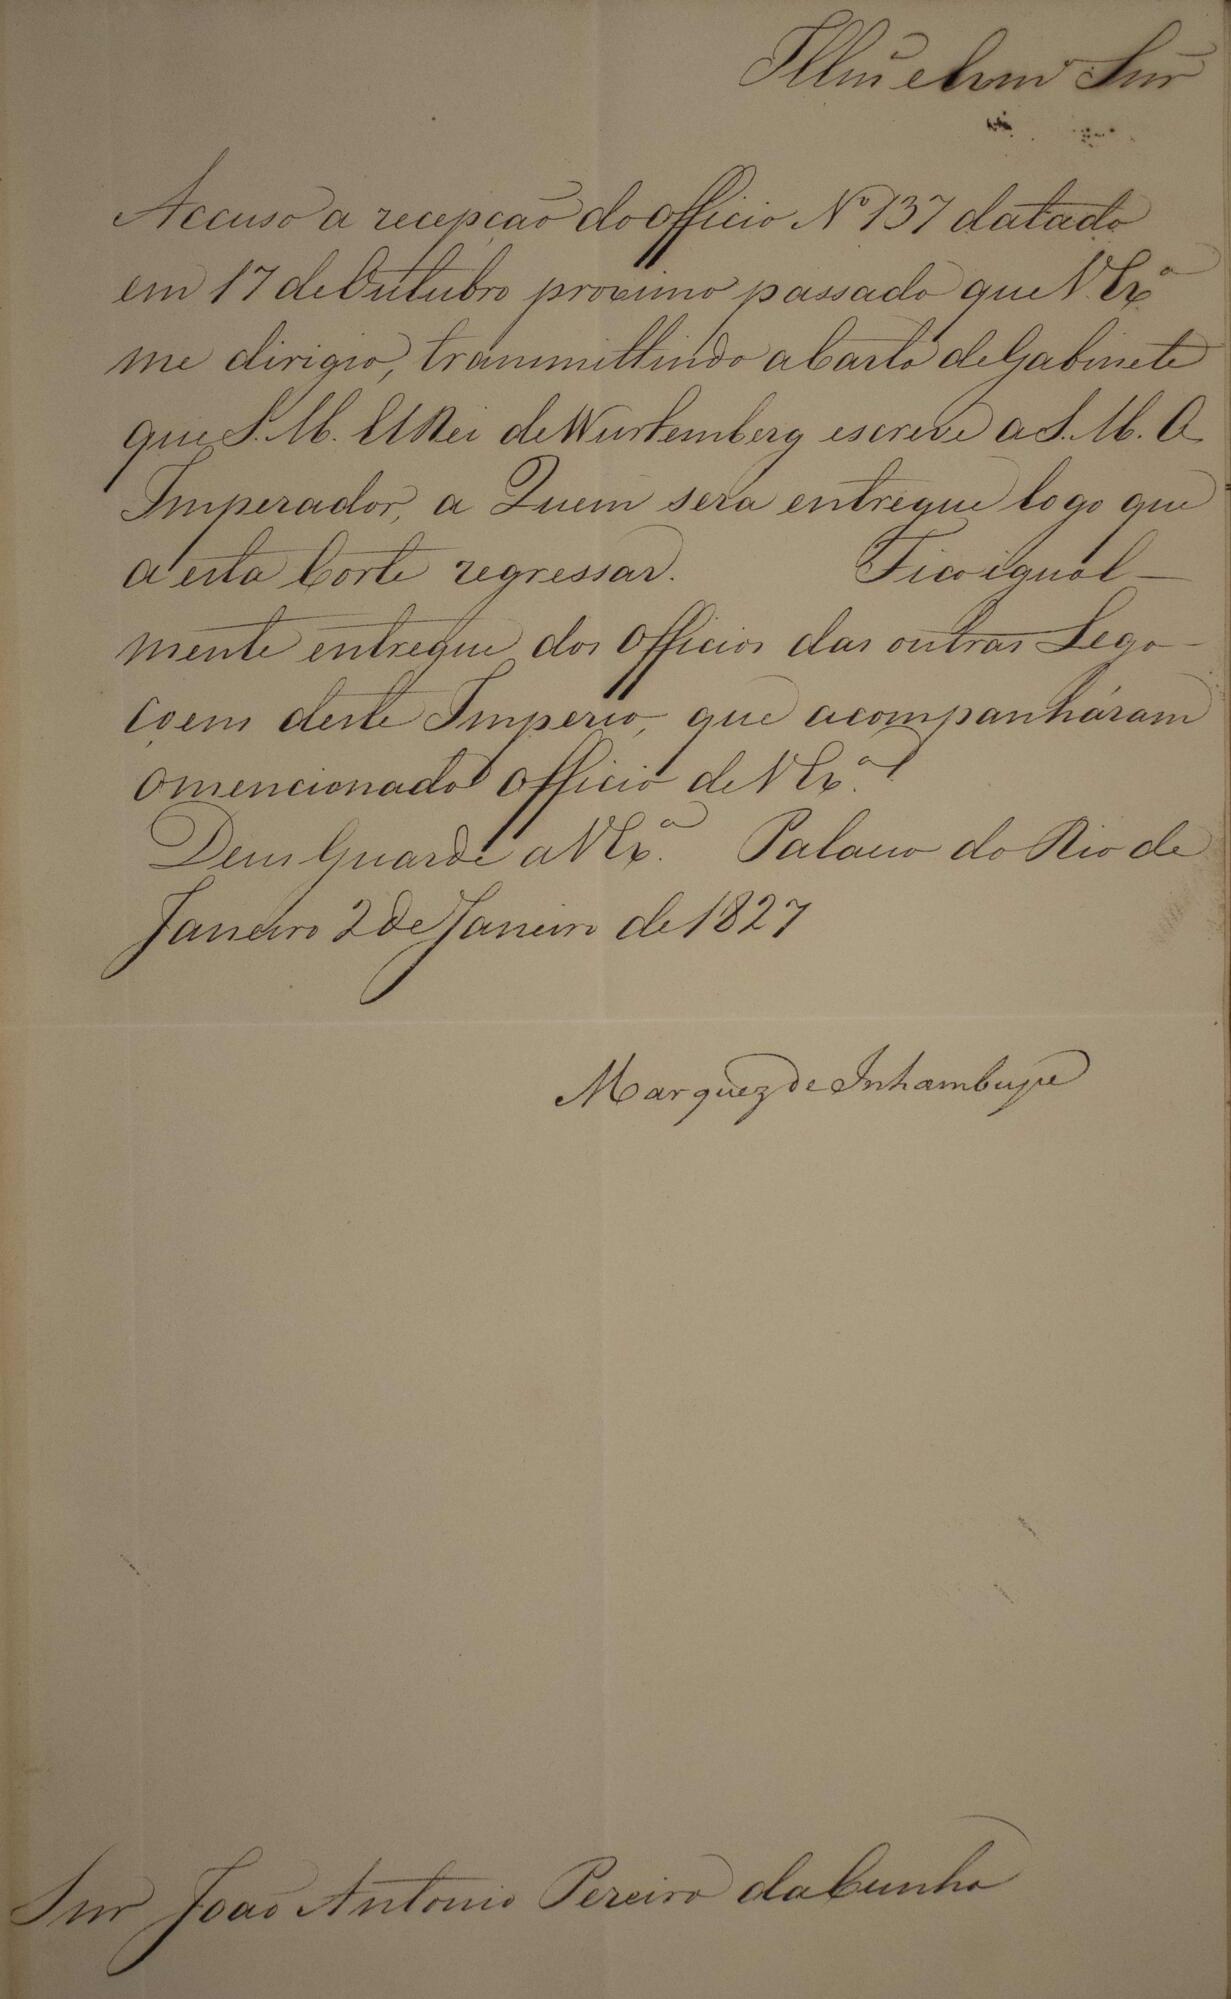 Illmo e Exmo Snr
Accuso a recepção do officio Nº 137 datado
em 17 de Outubro proximo passado que V. Exª
me dirigio, transmittindo a Carta de Gabinete
que S. M. ElRei de Wurtemberg escreve a S. M. O
Imperador, a Quem sera entregue logo que
a esta Corte regressar. Fico igual-
mente entregue dos officios das outras Lega-
çoens deste Imperio, que acompanháram
o mencionado officio de V Exª.
Deus Guarde a V Exª. Palacio do Rio de
Janeiro 2 de Janeiro de 1827
Marquez de Inhambupe
Snr João Antonio Pereira da Cunha